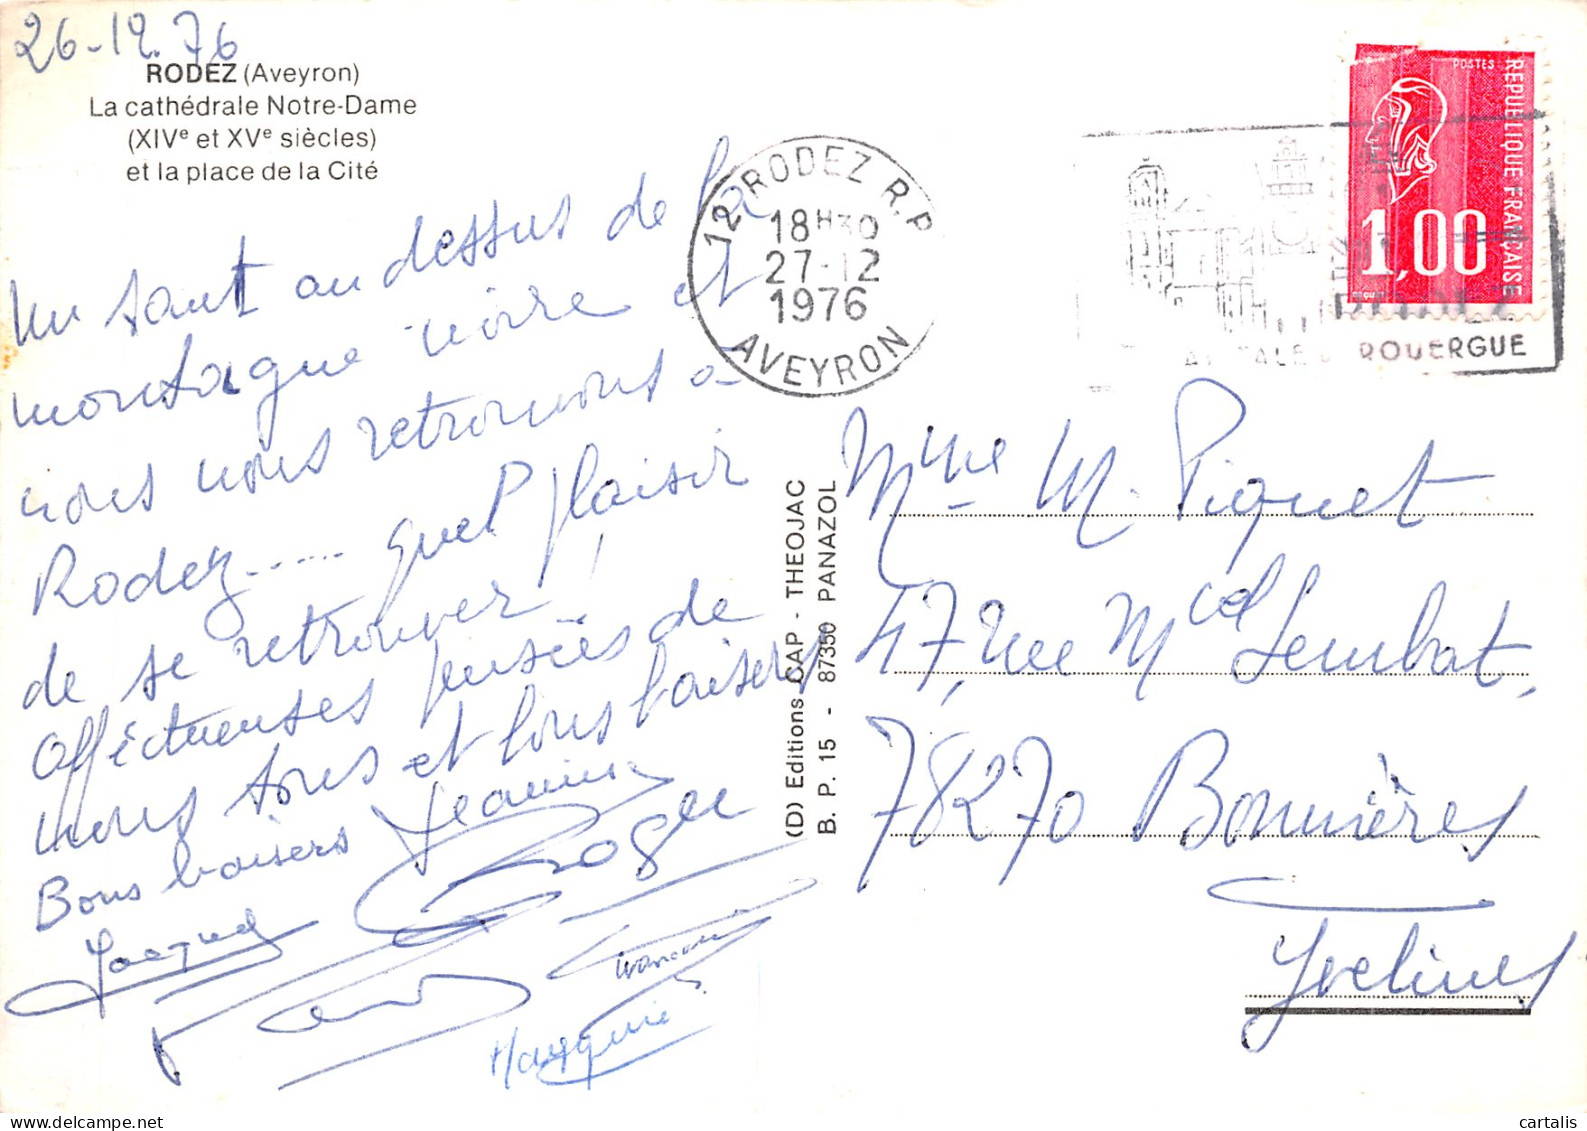 26-12.76
RODEZ (Aveyron)
La cathédrale Notre-Dame
(XIVe et XVe siècles)
et la place de la Cité
Un saut au dessus de la
montagne noire et
nous nous retrouvons à
Rodez..... quel plaisir
de se retrouver!
Affectueuses pensées de
nous tous et tous baisers
Bons baisers Jeannine
Roger
Jacques
Francoise
Marguerite
(D) Editions CAP - THEOJAC
B. P. 15 - 87350 PANAZOL
12 RODEZ R.P.
18H30
27-12
1976
AVEYRON
POSTES
REPUBLIQUE FRANÇAISE
1,00
BEQUET
RODEZ
CAPITALE DU ROUERGUE
Mme M. Piquet
47, rue Mcel Sembat,
78270 Bonnières
Yvelines
cartalis